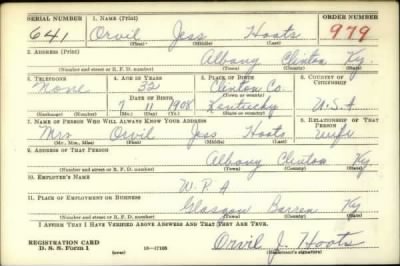 SERIAL NUMBER 1. NAME (Print) ORDER NUMBER
641 Orvil Jess Hoots 979
(First) (Middle) (Last)
2. ADDRESS (Print)
Albany Clinton Ky.
(Number and street or R. F. D. number) (Town) (County) (State)
3. TELEPHONE 4. AGE IN YEARS 5. PLACE OF BIRTH 6. COUNTRY OF CITIZENSHIP
None 32 Clinton Co.
DATE OF BIRTH (Town or county)
7 11 1908 Kentucky U.S.A
(Exchange) (Number) (Mo.) (Day) (Yr.) (State or country)
7. NAME OF PERSON WHO WILL ALWAYS KNOW YOUR ADDRESS 8. RELATIONSHIP OF THAT PERSON
Mrs Orvil Jess Hoots wife
(Mr., Mrs., Miss) (First) (Middle) (Last)
9. ADDRESS OF THAT PERSON
Albany Clinton Ky
(Number and street or R. F. D. number) (Town) (County) (State)
10. EMPLOYER'S NAME
W.P.A
11. PLACE OF EMPLOYMENT OR BUSINESS
Glasgow Barren Ky
(Number and street or R. F. D. number) (Town) (County) (State)
I AFFIRM THAT I HAVE VERIFIED ABOVE ANSWERS AND THAT THEY ARE TRUE.
REGISTRATION CARD
D. S. S. Form 1 (over) 16—17105 Orvil J. Hoots
(Registrant's signature)